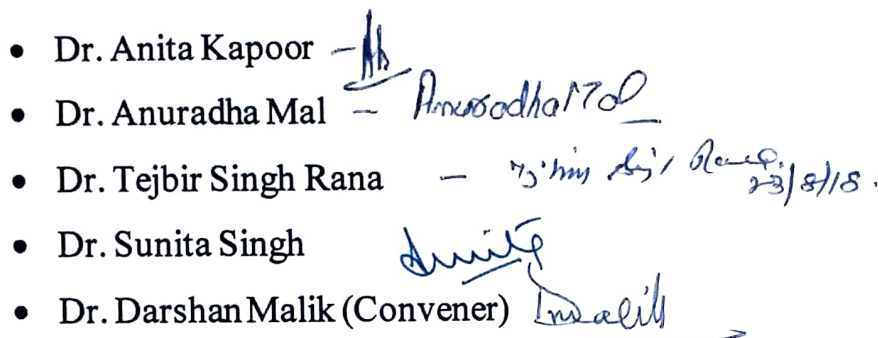 • Dr. Anita Kapoor –
• Dr. Anuradha Mal – Anuradha Mal
• Dr. Tejbir Singh Rana – Tejbir Singh Rana 23/8/18.
• Dr. Sunita Singh Sunita
• Dr. Darshan Malik (Convener) DMalik